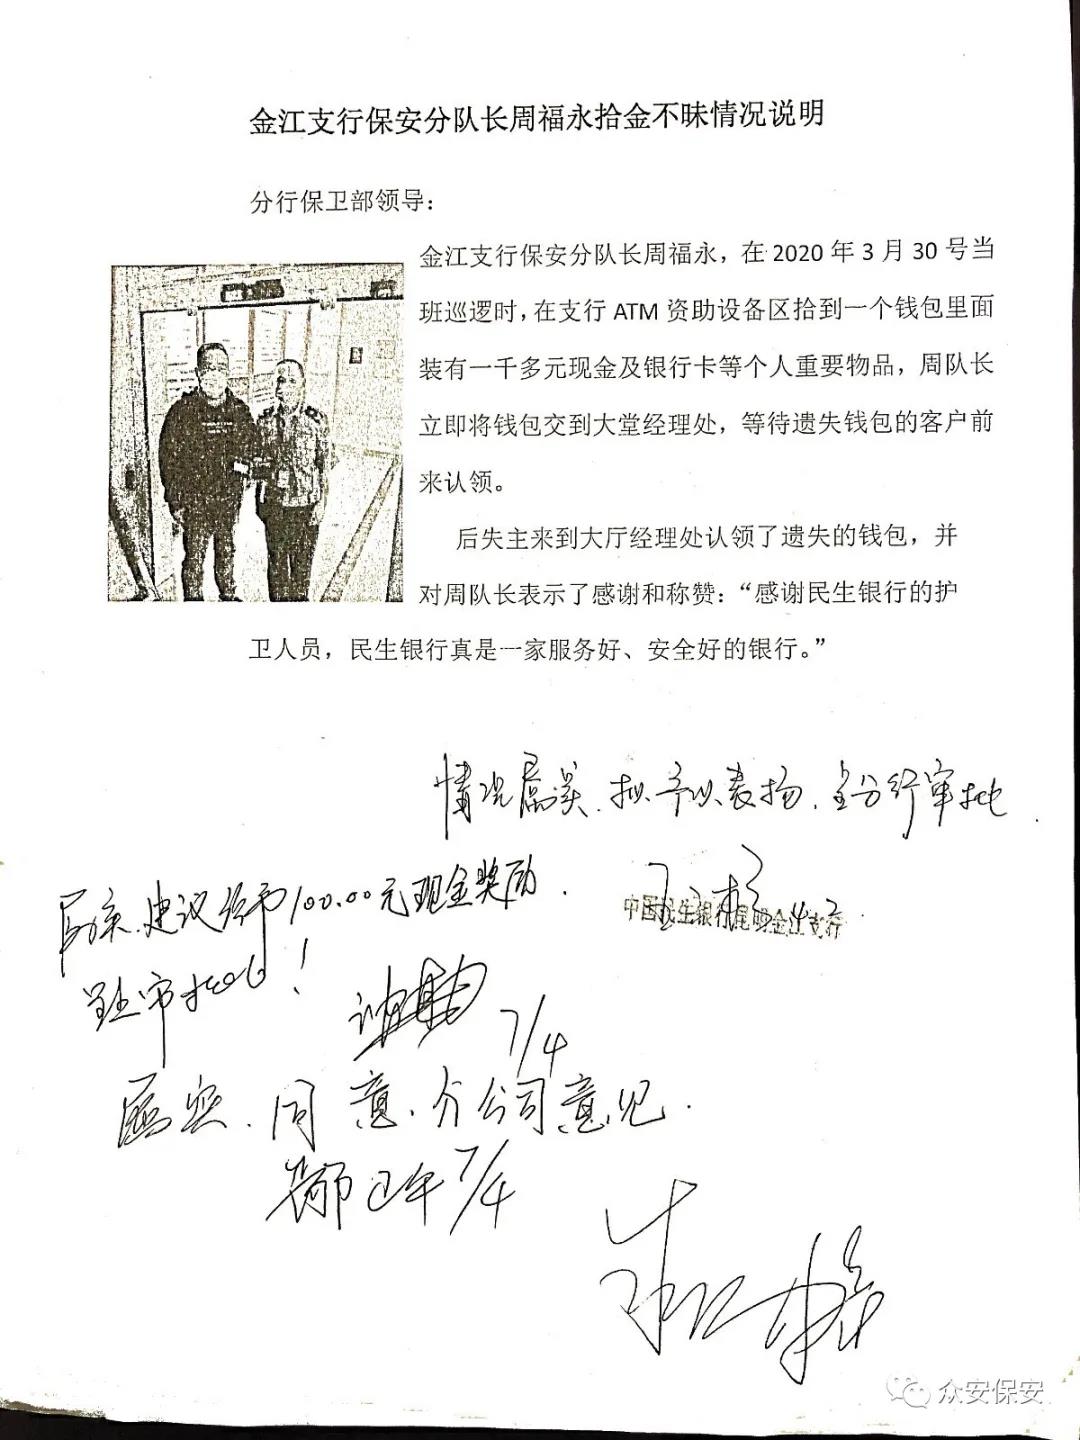 金江支行保安分队长周福永拾金不昧情况说明
分行保卫部领导：
金江支行保安分队长周福永，在 2020 年 3 月 30 号当
班巡逻时，在支行 ATM 资助设备区拾到一个钱包里面
装有一千多元现金及银行卡等个人重要物品，周队长
立即将钱包交到大堂经理处，等待遗失钱包的客户前
来认领。
后失主来到大厅经理处认领了遗失的钱包，并
对周队长表示了感谢和称赞：“感谢民生银行的护
卫人员，民生银行真是一家服务好、安全好的银行。”
情况属实、拟予以表扬、分行审批
中国民生银行昆明金江支行
属实、建议给予100.00元现金奖励．
审批！
7/4
属实、同意分公司意见．
7/4
众安保安